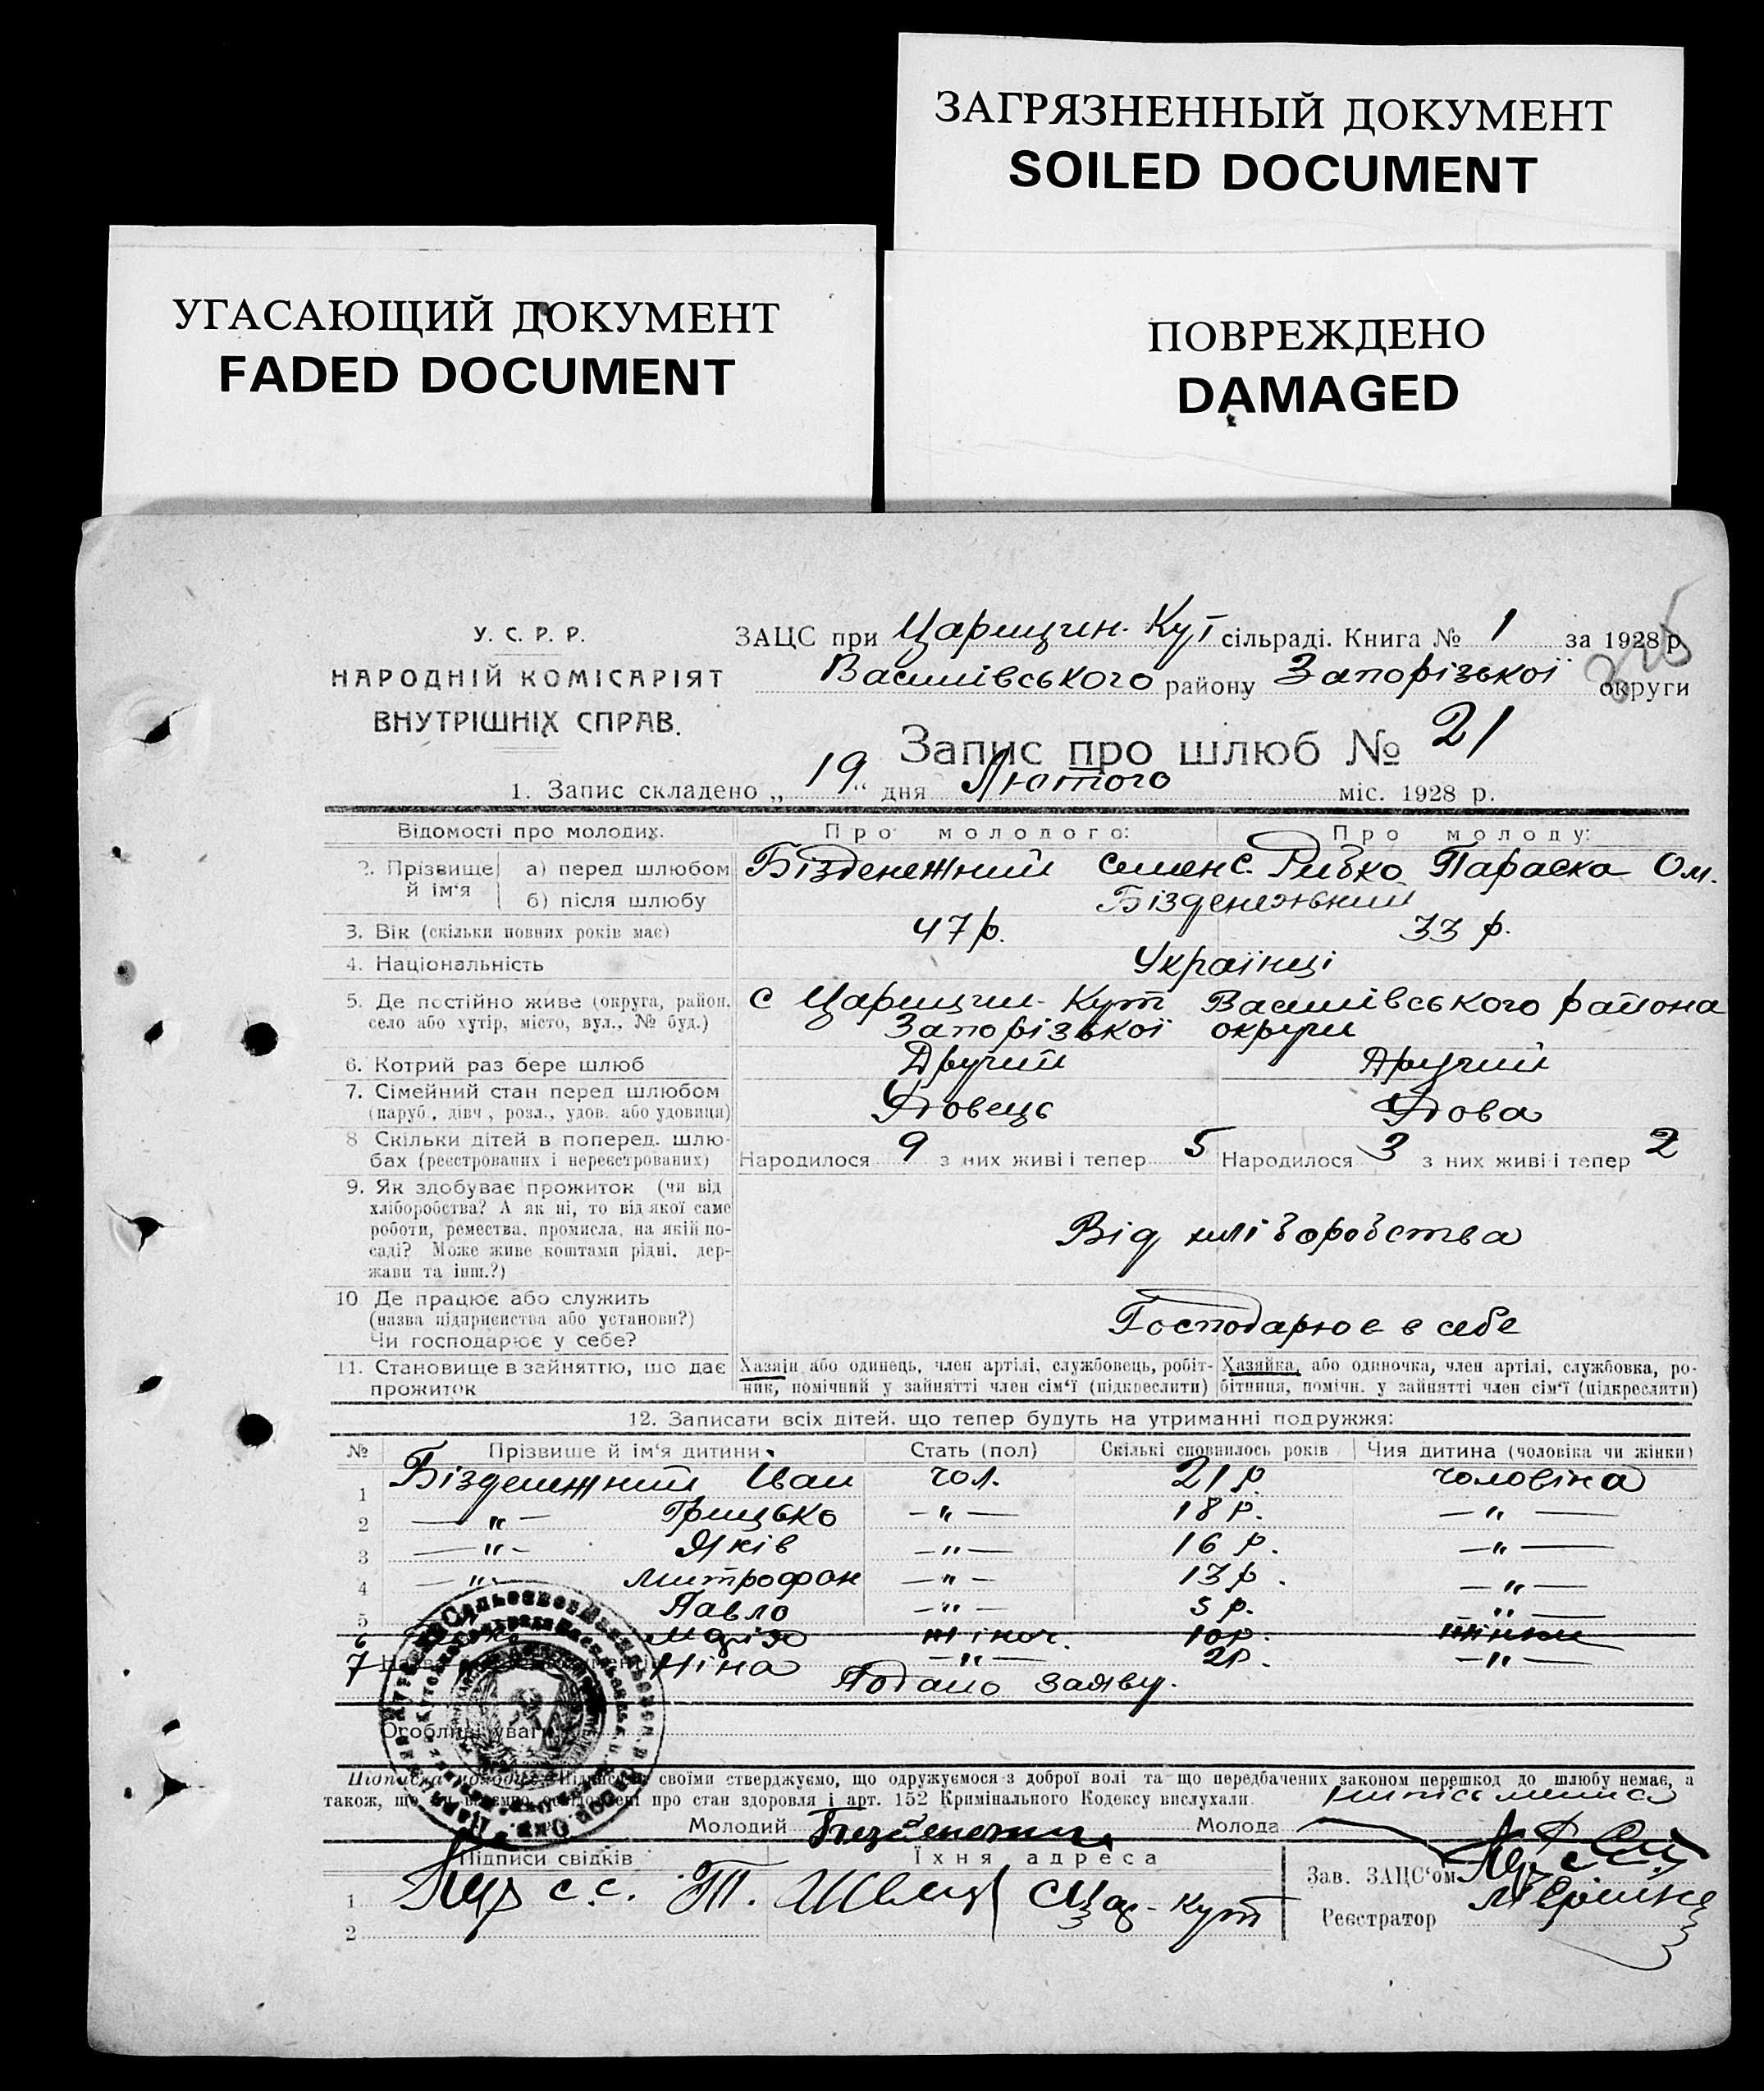 ЗАГРЯЗНЕННЫЙ ДОКУМЕНТ
SOILED DOCUMENT
УГАСАЮЩИЙ ДОКУМЕНТ
FADED DOCUMENT
ПОВРЕЖДЕНО
DAMAGED
У. С. Р. Р.
НАРОДНІЙ КОМІСАРІЯТ
ВНУТРІШНІХ СПРАВ.
ЗАЦС при Царицин-Кут сільраді. Книга № 1 за 1928 р.
Василівського району Запорізької округи
Запис про шлюб № 21
1. Запис складено „ 19 “ дня Лютого міс. 1928 р.
Відомості про молодих. Про молодого: Про молоду:
2. Прізвище й ім‘я а) перед шлюбом Бізденежний Семен С. Рибко Параска Ом.
б) після шлюбу Бізденежний
3. Вік (скільки повних років має) 47 р. 33 р.
4. Національність Українці
5. Де постійно живе (округа, район, с Царицин-Кут Василівського района
село або хутір, місто, вул., № буд.) Запорізької округи
6. Котрий раз бере шлюб Другий Другий
7. Сімейний стан перед шлюбом Удовець Удова
(паруб., дівч., розл., удов. або удовиця)
8 Скільки дітей в поперед. шлю-
бах (реєстрованих і нереєстрованих) Народилося 9 з них живі і тепер 5 Народилося 3 з них живі і тепер 2
9. Як здобуває прожиток (чи від
хліборобства? А як ні, то від якої саме
роботи, ремества, промисла, на якій по-
саді? Може живе коштами рідні, дер-
жави та інш.?)
Від хліборобства
10 Де працює або служить
(назва підприємства або установи?)
Чи господарює у себе?
Господарює в себе
11. Становище в зайняттю, що дає
прожиток
Хазяїн або одинець, член артілі, службовець, робіт-
ник, помічний у зайнятті член сім‘ї (підкреслити)
Хазяйка, або одиночка, член артілі, службовка, ро-
бітниця, помічн. у зайнятті член сім‘ї (підкреслити)
12. Записати всіх дітей, що тепер будуть на утриманні подружжя:
№ Прізвище й ім‘я дитини Стать (пол) Скількі сповнилось років Чия дитина (чоловіка чи жінки)
1 Бізденежний Іван чол. 21 р. чоловіка
2 — „ — Грицько — „ — 18 р. — „ —
3 — „ — Яків — „ — 16 р. — „ —
4 — „ — Митрофан — „ — 13 р. — „ —
5 Павло — „ — 5 р. — „ —
6 Марія жіноч. 10 р. жінки
7 Ніна — „ — 2 р. — „ —
Подано заяву.
Особливі уваги
Підписка молодих: Підписами своїми стверджуємо, що одружуємося з доброї волі та що передбачених законом перешкод до шлюбу немає, а
також, що ми взаємно освідомлені про стан здоровля і арт. 152 Кримінального Кодексу вислухали.
Молодий Безденежний Молода
Підписи свідків Їхня адреса Зав. ЗАЦС‘ом
1 Цар-Кут
Реєстратор
2